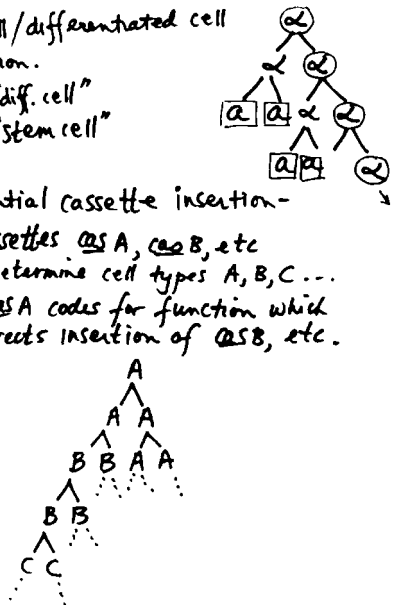 ll/differentiated cell
ion.
diff. cell"
"stem cell"
α
α α
a a α α
a a α
ntial cassette insertion-
ssettes casA, casB, etc
etermine cell types A, B, C ...
asA codes for function which
rects insertion of casB, etc.
A
A A
B B A A
B B
C C